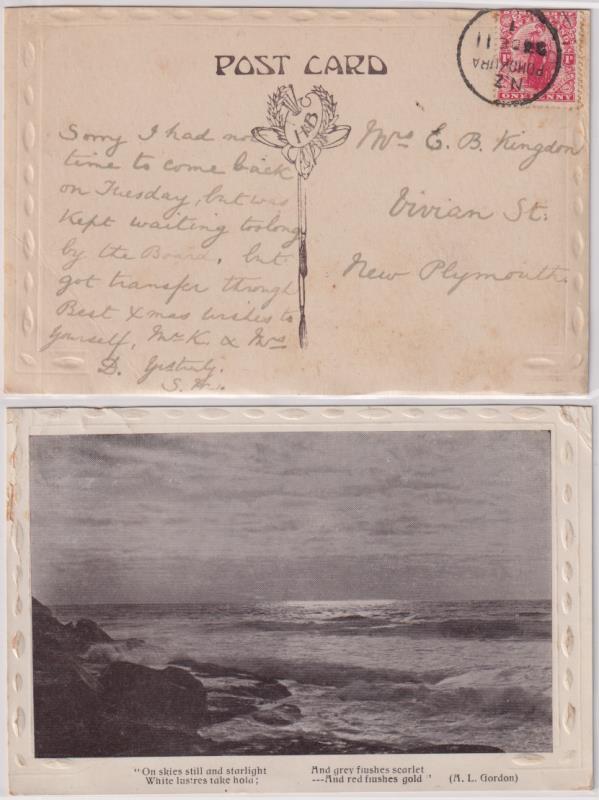 POST CARD
N.Z
POHOKURA
23 DE 11
ONE PENNY
H&B
Sorry I had not
time to come back
on Tuesday, but was
Kept waiting too long
by the Board, but
got transfer through
Best Xmas wishes to
yourself, Mr K. & Mrs
D.
Mrs E. B. Kingdon
Vivian St.
New Plymouth.
"On skies still and starlight
White lustres take hold;
And grey flushes scarlet
---And red flushes gold"
(A. L. Gordon)